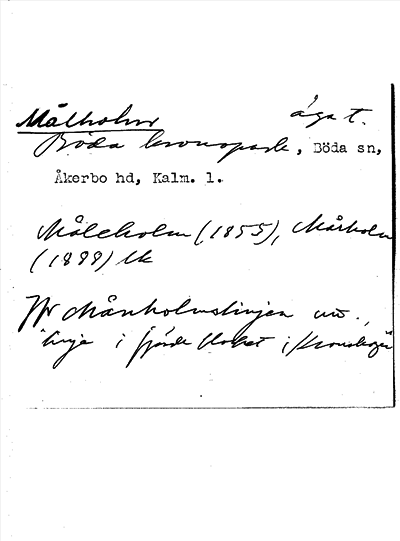 Målholm äga t.
Böda kronopark, Böda sn,
Åkerbo hd, Kalm. l.
Måleholm (1855), Mårholm
(1899) lk
Jfr Månholmslinjen
linje i fjärde blocket i Kronskogen